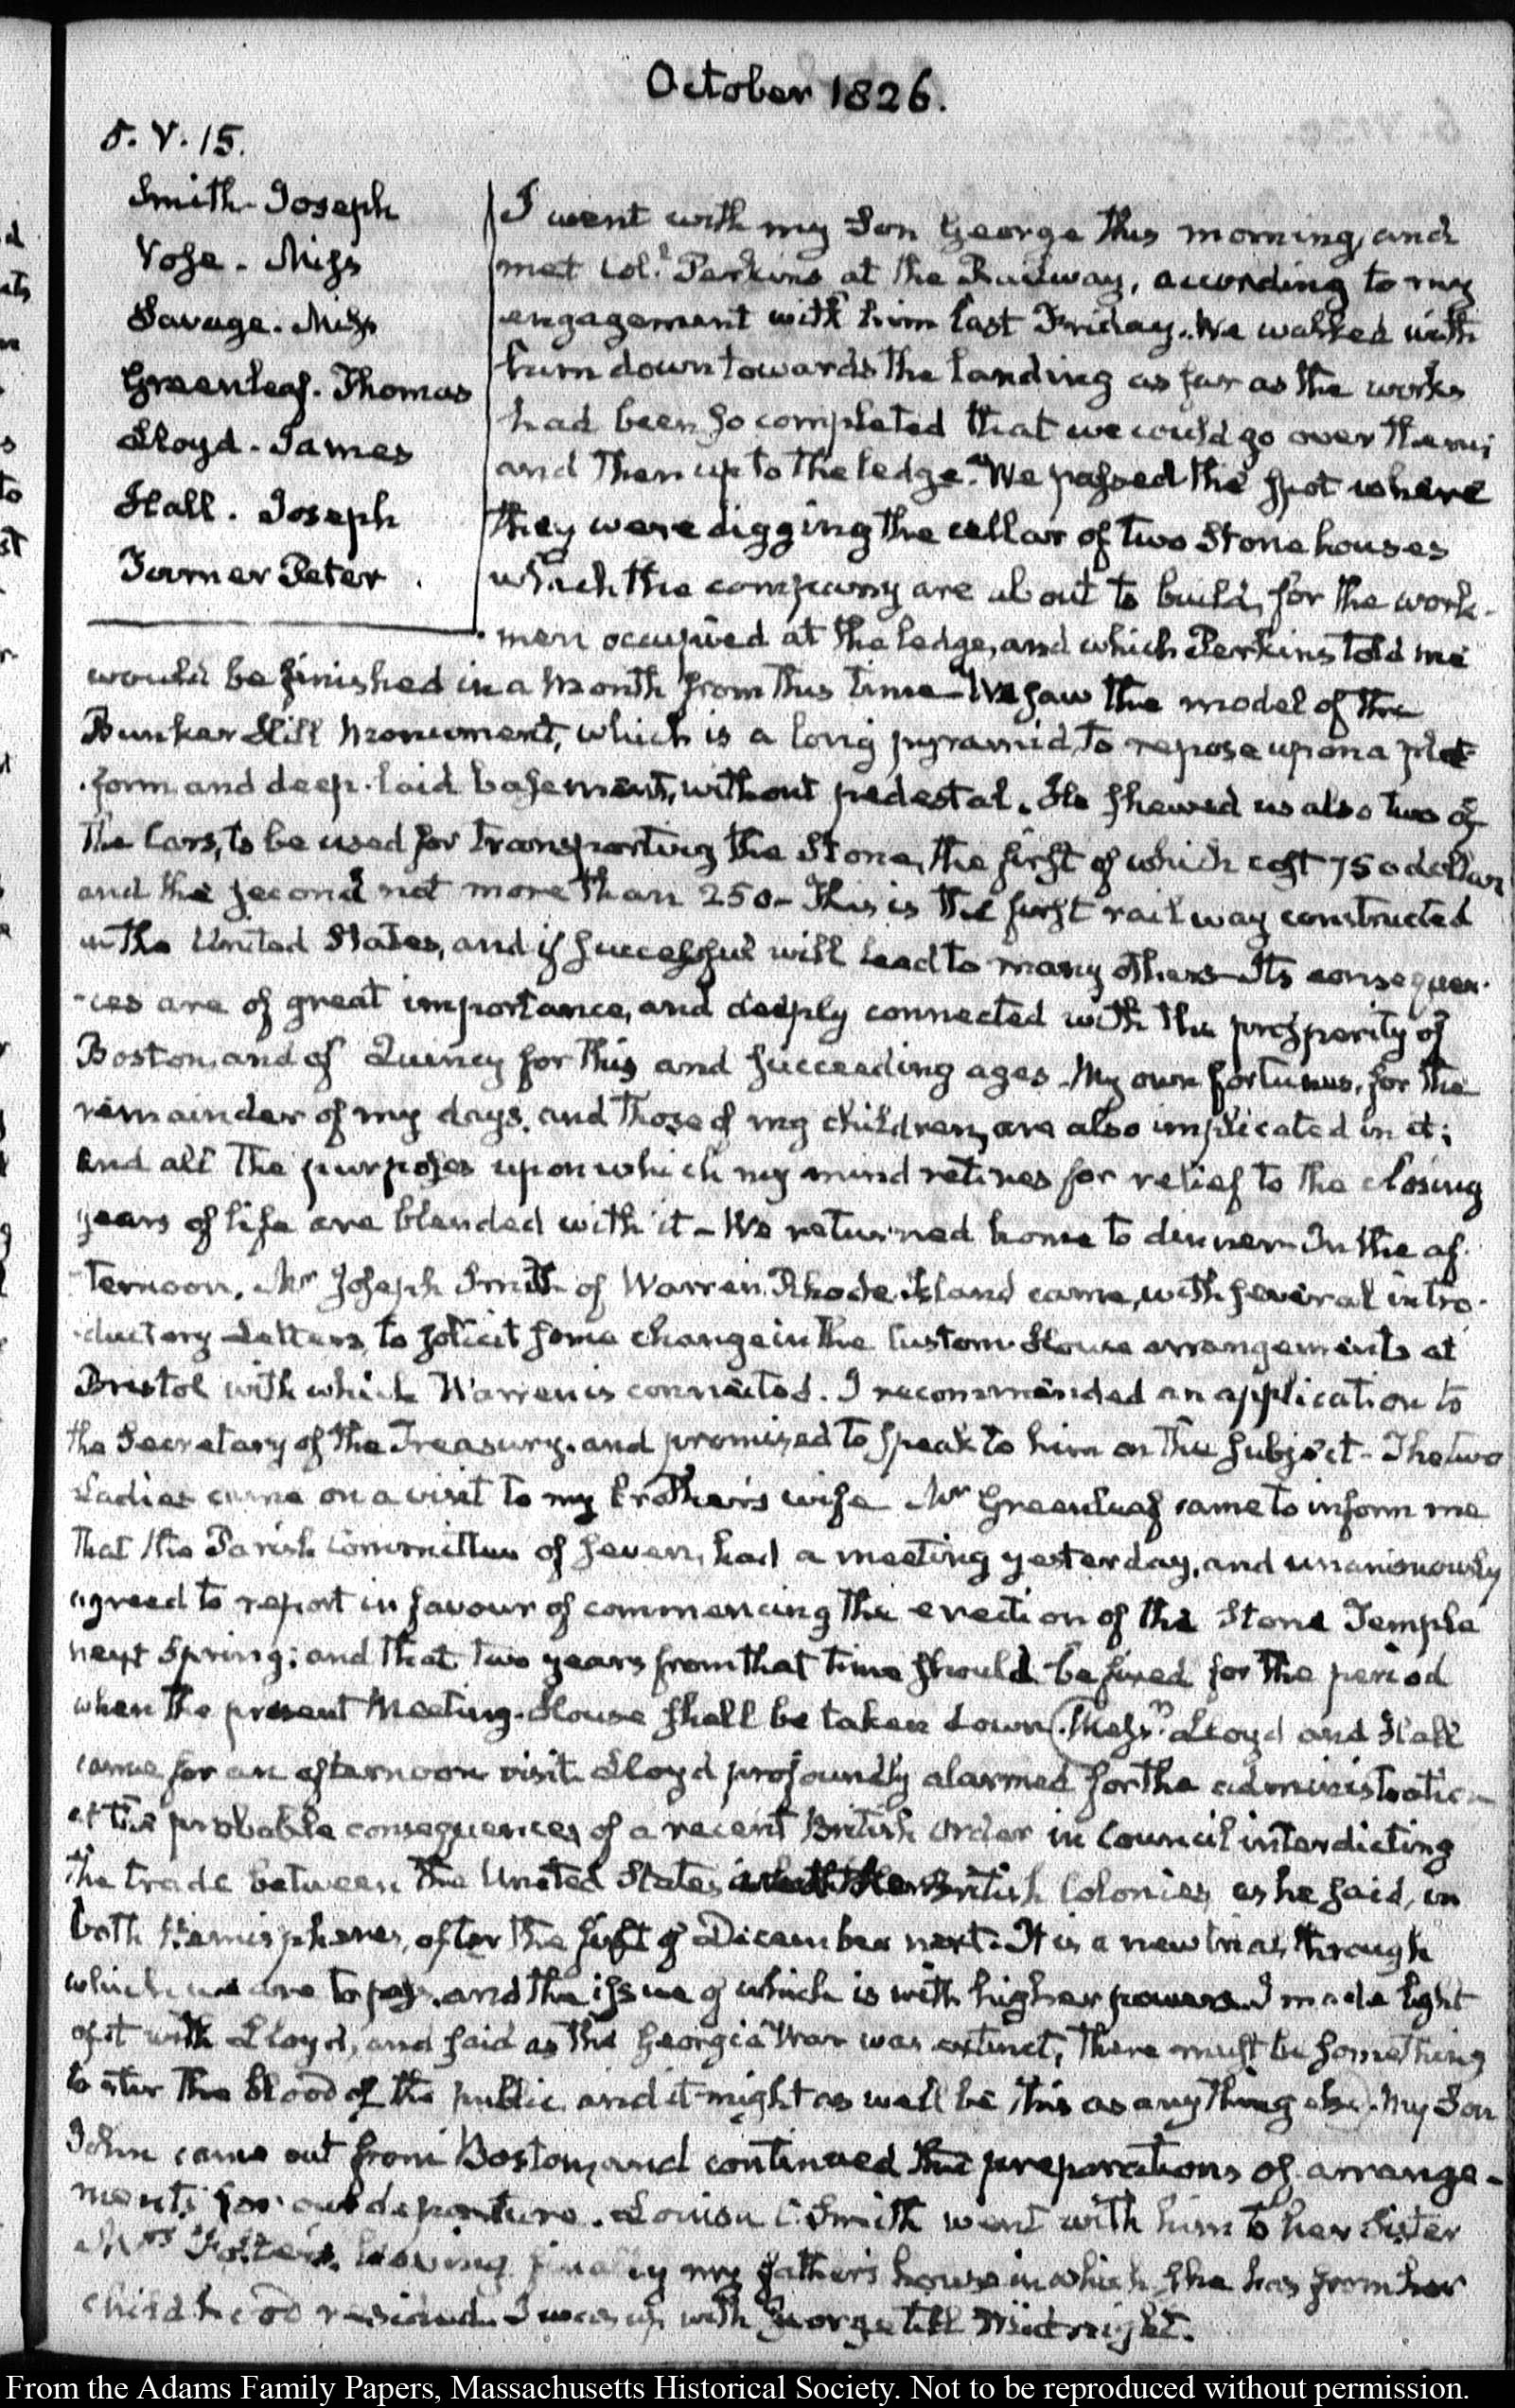 October 1826.
5. V. 15.
Smith. Joseph
Vose. Miss
Savage. Miss
Greenleaf. Thomas
Lloyd. James
Hall. Joseph
Turner Peter.
I went with my Son George this morning, and
met Col.l Perkins at the Railway, according to my
engagement with him last Friday. We walked with
him down towards the landing as far as the works
had been so completed that we could go over them;
and then up to the ledge. We passed the spot where
they were digging the cellar of two Stone houses
which the company are about to build, for the work-
men occupied at the ledge, and which Perkins told me
would be finished in a Month from this time—We saw the model of the
Bunker Hill Monument, which is a long pyramid, to repose upon a plat-
form and deep-laid basement, without pedestal. He shewed us also two of
the Cars, to be used for transporting the Stone, the first of which cost 750 dollars
and the second not more than 250—This is the first rail way constructed
in the United States, and if successful will lead to many others—Its consequen-
ces are of great importance, and deeply connected with the prosperity of
Boston, and of Quincy for this and succeeding ages—My own fortunes, for the
remainder of my days, and those of my children, are also implicated in it;
and all the purposes upon which my mind retires for relief to the closing
years of life are blended with it—We returned home to dinner—In the af-
ternoon, Mr Joseph Smith of Warren Rhode-Island came, with several intro-
ductory Letters, to solicit some change in the Custom-House arrangements at
Bristol with which Warren is connected. I recommended an application to
the Secretary of the Treasury, and promised to speak to him on the subject—The two
Ladies came on a visit to my brother's wife Mr Greenleaf came to inform me
that the Parish Committee of seven, had a meeting yesterday, and unanimously
agreed to report in favour of commencing the erection of the Stone Temple
next Spring; and that two years from that time should be fixed for the period
when the present Meeting-House shall be taken down. Messrs Lloyd and Hall
came for an afternoon visit. Lloyd profoundly alarmed for the administration
at the probable consequences of a recent British order in Council interdicting
the trade between the United States British Colonies, as he said, in
both Hemispheres, after the first of December next. It is a new trial through
which we are to pass, and the issue of which is with higher powers. I made light
of it with Lloyd, and said as the Georgia War was extinct, there must be something
to stir the blood of the public, and it might as well be this as any thing else. My Son
John came out from Boston, and continued the preparations of arrange-
ments for our departure. Louisa C. Smith went with him to her Sister
Mrs Foster's, leaving finally my father's house in which she has from her
childhood resided. I was up with George till Midnight.
From the Adams Family Papers, Massachusetts Historical Society. Not to be reproduced without permission.